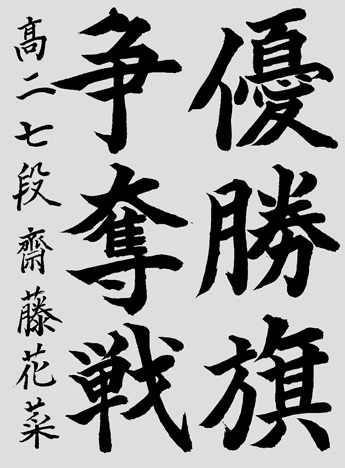 優勝旗
争奪戦
高二七段齋藤花菜